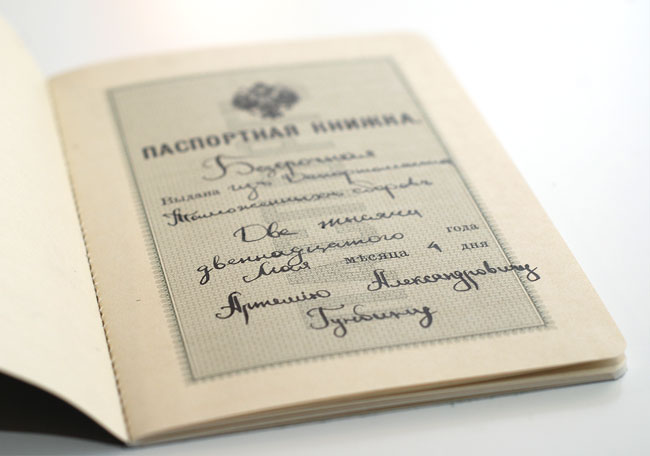 ПАСПОРТНАЯ КНИЖКА.
Безсрочная
Выдана изъ Департамента
Таможенныхъ сборовъ
Две тысячи
двенадцатого года
Мая мѣсяца 4 дня
Артемію Александровичу